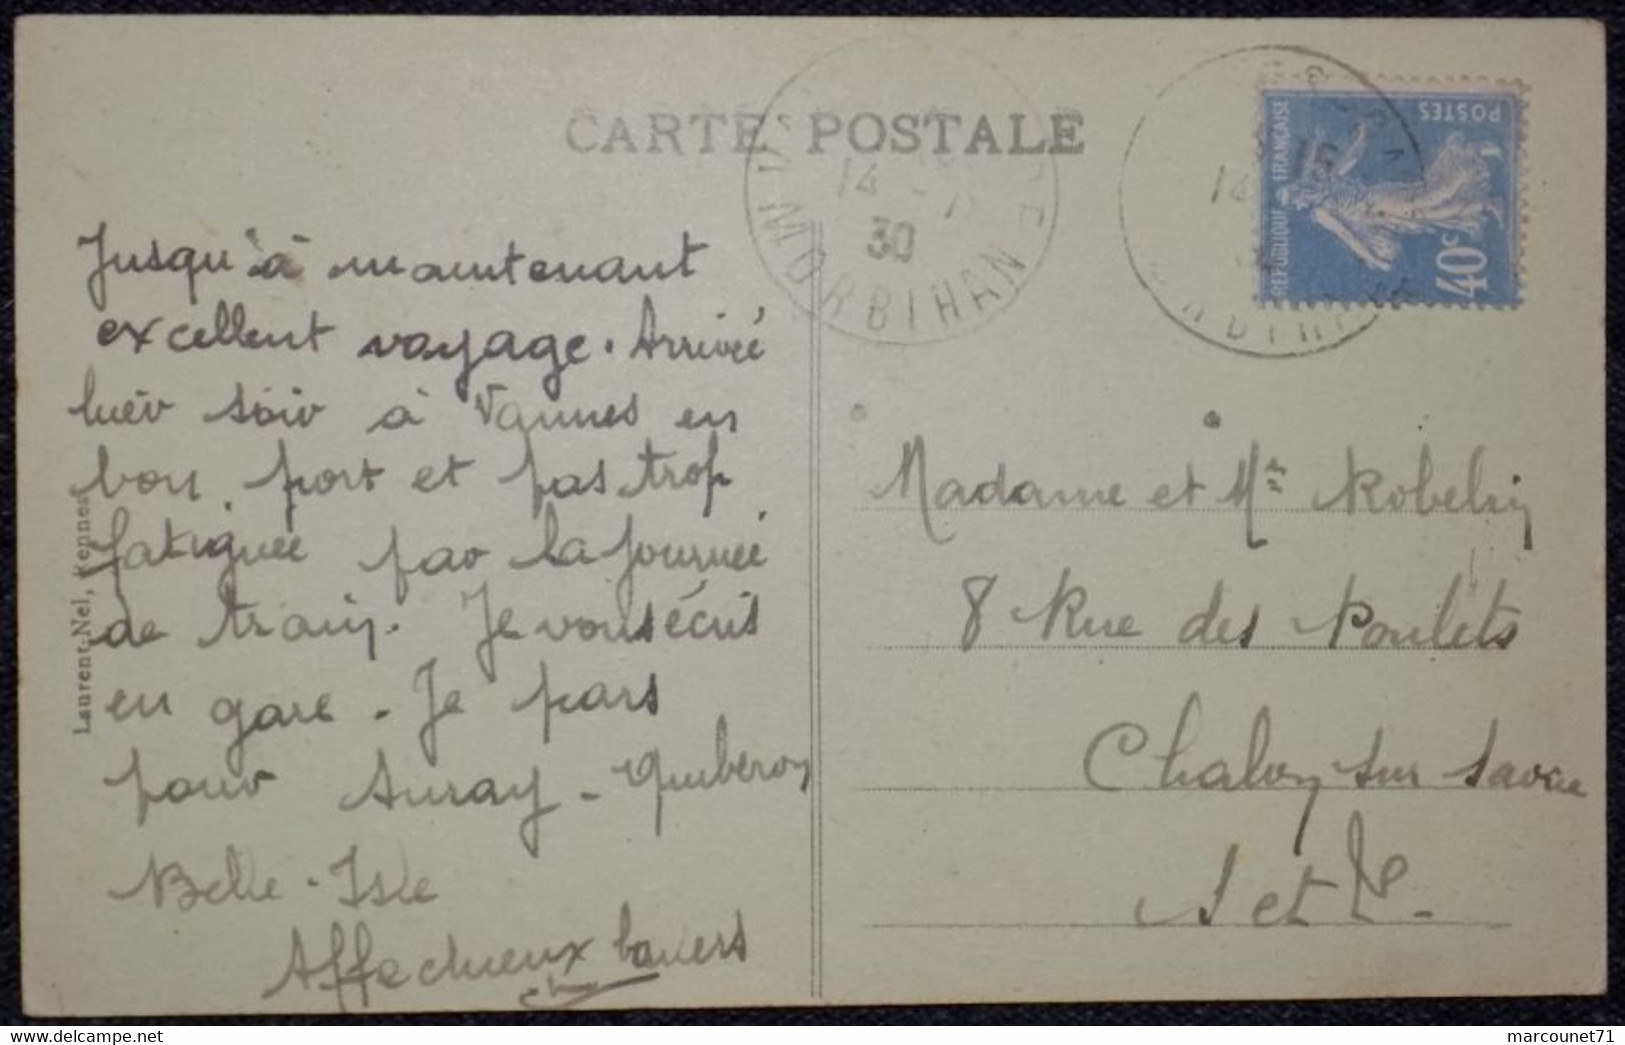 CARTE POSTALE
14
30
MORBIHAN
14
15
REPUBLIQUE FRANÇAISE
POSTES
40c
Jusqu'à maintenant
excellent voyage. Arrivée
hier soir à Vannes en
bon port et pas trop
fatiguée par la journée
de train. Je vous écris
en gare - Je pars
pour Auray - Quiberon
Belle-Isle
Affectueux baisers
Laurent-Nel, Rennes
Madame et Mr Robelin
8 Rue des Poulets
Chalon sur Saone
S et L.
marcounet71